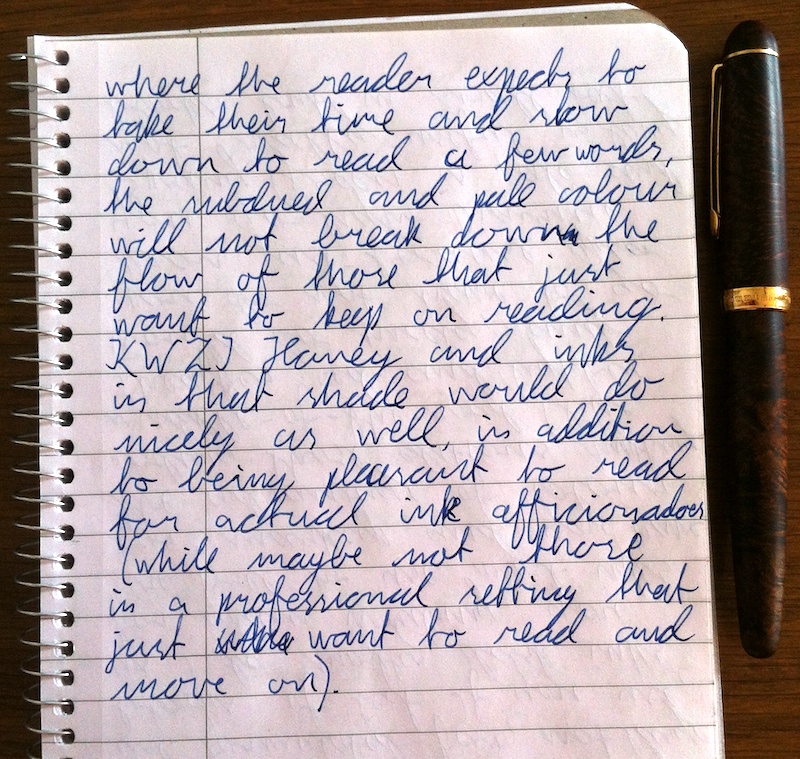 where the reader expects to
take their time and slow
down to read a few words,
the subdued and pale colour
will not break down the
flow of those that just
want to keep on reading.
KWZI Honey and inks
in that shade would do
nicely as well, in addition
to being pleasant to read
for actual ink afficionadoes
(while maybe not those
in a professional setting that
just want to read and
move on).